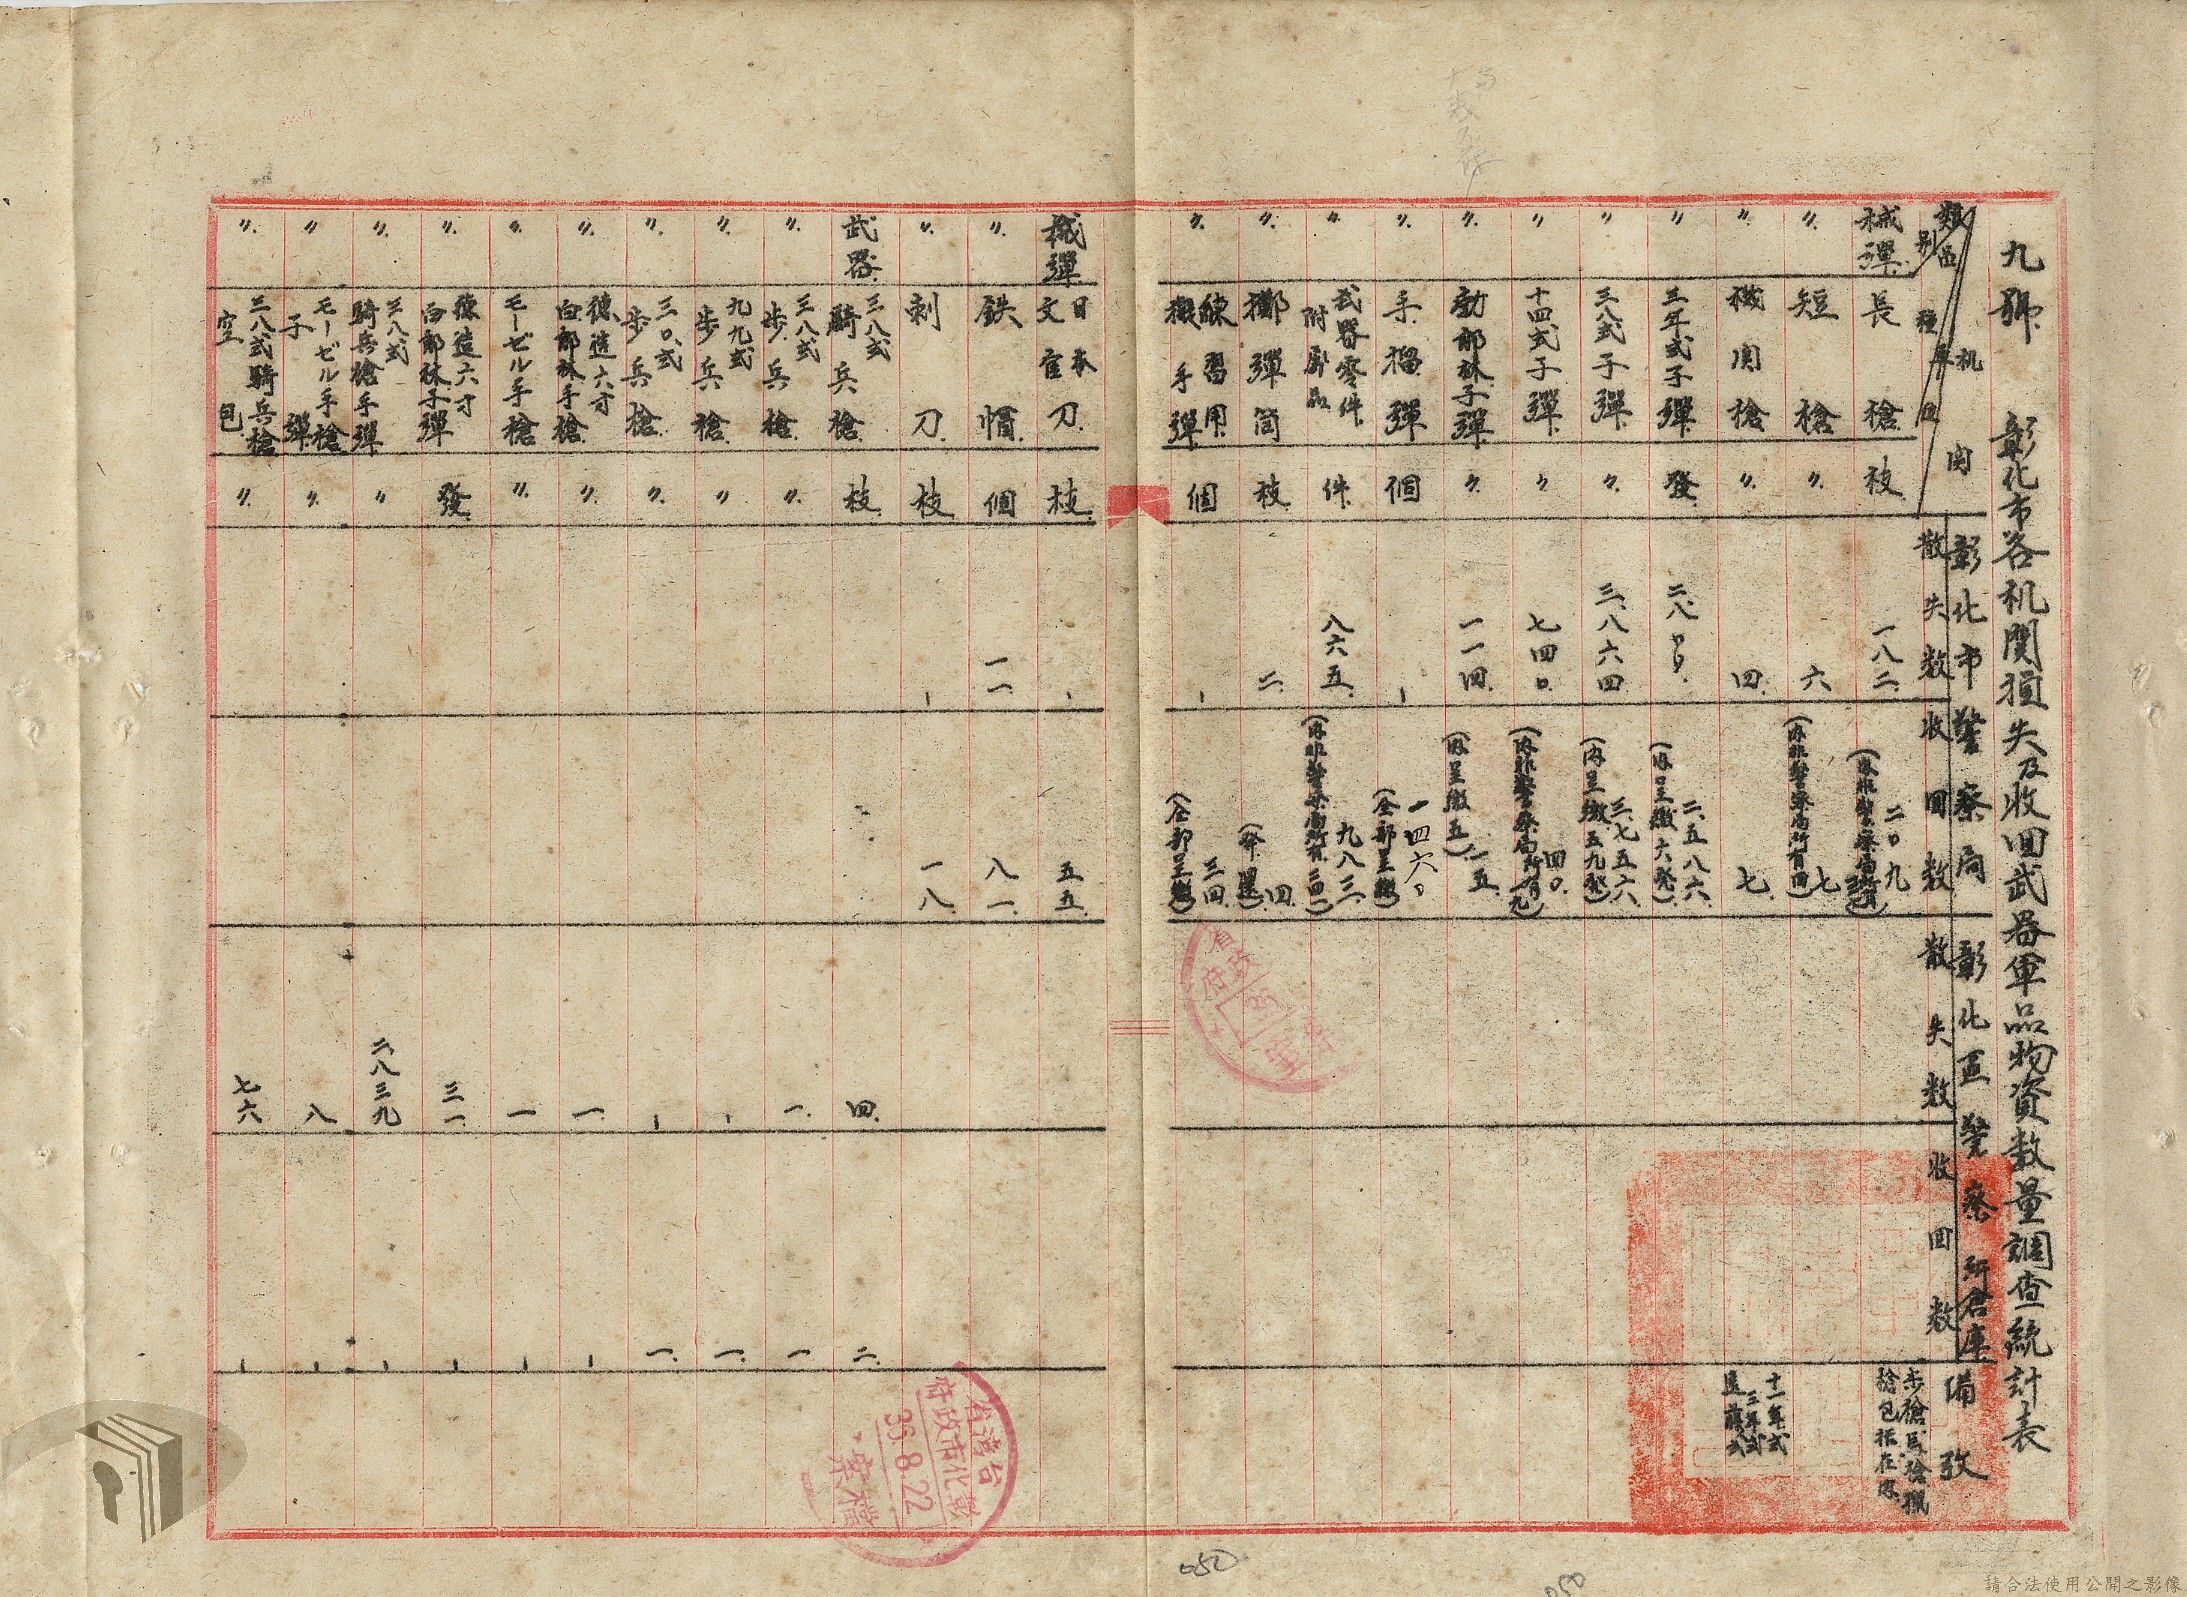 九號 彰化市各机関損失及收回武器軍品物資数量調查統計表
類別 品種 單位 机関
彰化市警察局 散失数 收回数
彰化区警察所倉庫 散失数 收回数
備攷
械彈 長槍 枝 一八二 二〇九 步槍馬槍獵槍包括在內
〃 短槍 〃 六 七 (內非警察局所有四)
〃 機関槍 〃 四 七 十一年式 三年式
〃 三年式子彈 發 二、八〇〇 二、五八六 (內呈繳六発)
〃 三八式子彈 〃 三、八六四 三、七五六 (內呈繳五九発)
〃 十四式子彈 〃 七四〇 四〇 (內非警察局所有一九)
〃 勃郎林子彈 〃 一一四 一五 (內呈繳五)
〃 手榴彈 個 一 一四六〇 (全部呈繳)
〃 武器零件附屬品 件 八六五 九八三 (內非警察局所有二四一)
〃 擲彈筒 枝 二 四
〃 練習用機手彈 個 一 三四 (全部呈繳)
械彈 日本文官刀 枝 一 五五
〃 鉄帽 個 一一 八一
〃 刺刀 枝 一 一八
武器 三八式騎兵槍 枝 四 二
〃 三八式步兵槍 〃 一 一
〃 九九式步兵槍 〃 一 一
〃 三〇式步兵槍 〃 一 一
〃 德造六寸白郎林手槍 〃 一 一
〃 モーゼル手槍 〃 一 一
〃 德造六寸白郎林子彈 發 三一 一
〃 三八式騎兵槍手彈 〃 二、八三九 一
〃 モーゼル手槍子彈 〃 八 一
〃 三八式騎兵槍空包 〃 七六 一
台灣省
彰化市政府
36.8.22
檔案室
050
050
請合法使用公開之影像